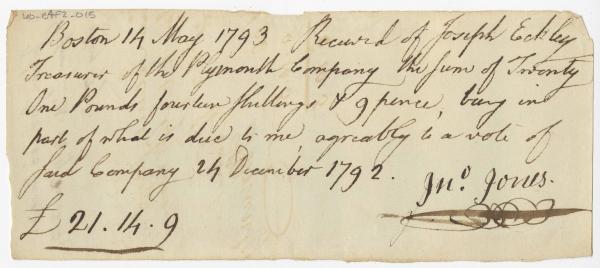 ub-eAf2-015
Boston 14 May 1793 Received of Joseph Eckley
Treasurer of the Plymouth Company the Sum of Twenty
One Pounds fourteen Shillings & 9 pence, being in
part of what is due to me, agreably to a vote of
said Company 24 December 1792.
Jnº. Jones.
£ 21.14.9